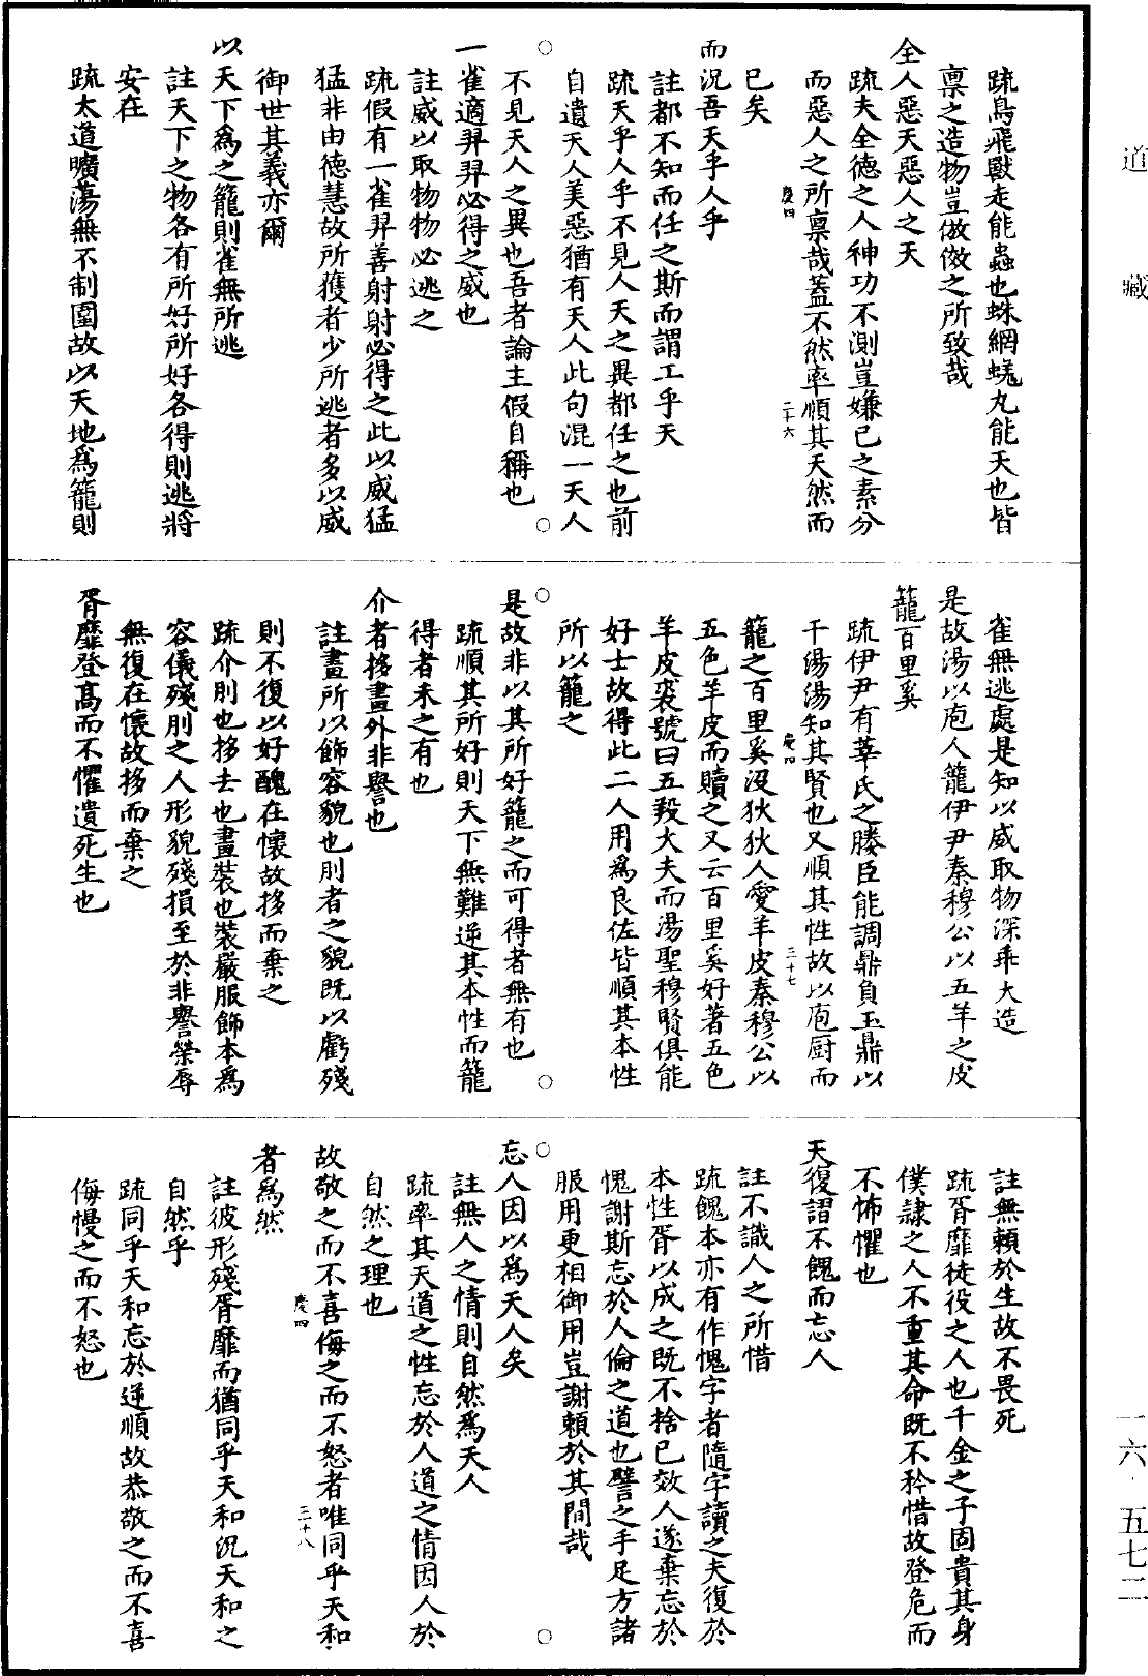 道藏
疏鳥飛獸走能蟲也蛛網蜣丸能天也皆
禀之造物豈倣傚之所致哉
全人惡天惡人之天
疏夫全德之人神功不測豈嫌已之素分
而惡人之所禀哉蓋不然率順其天然而
慶四
二十六
已矣
而況吾天乎人乎
註都不知而任之斯而謂工乎天
疏天乎人乎不見人天之異都任之也前
自遺天人美惡猶有天人此句混一天人
不見天人之異也吾者論主假自稱也
一雀適羿羿必得之威也
註威以取物物必逃之
疏假有一雀羿善射射必得之此以威猛
猛非由德慧故所獲者少所逃者多以威
御世其義亦爾
以天下為之籠則雀無所逃
註天下之物各有所好所好各得則逃將
安在
疏太道曠蕩無不制圍故以天地為籠則
雀無逃處是知以威取物深乖大造
是故湯以庖人籠伊尹秦穆公以五羊之皮
籠百里奚
疏伊尹有莘氏之媵臣能調鼎負玉鼎以
干湯湯知其賢也又順其性故以庖厨而
慶四
三十七
籠之百里奚沒狄狄人愛羊皮秦穆公以
五色羊皮而贖之又云百里奚好著五色
羊皮裘號曰五羖大夫而湯聖穆賢俱能
好士故得此二人用為良佐皆順其本性
所以籠之
是故非以其所好籠之而可得者無有也
疏順其所好則天下無難逆其本性而籠
得者未之有也
介者拸畫外非譽也
註畫所以飾容貌也刖者之貌既以虧殘
則不復以好醜在懷故拸而棄之
疏介刖也拸去也畫裝也裝嚴服飾本為
容儀殘刖之人形貌殘損至於非譽榮辱
無復在懷故拸而棄之
胥靡登高而不懼遺死生也
註無賴於生故不畏死
疏胥靡徒役之人也千金之子固貴其身
僕隸之人不重其命既不矜惜故登危而
不怖懼也
夫復謵不餽而忘人
註不識人之所惜
疏餽本亦有作愧字者隨字讀之夫復於
本性胥以成之既不捨已效人遂棄忘於
愧謝斯忘於人倫之道也譬之手足方諸
服用更相御用豈謝賴於其間哉
忘人因以為天人矣
註無人之情則自然為天人
疏率其天道之性忘於人道之情因人於
自然之理也
故敬之而不喜侮之而不怒者唯同乎天和
慶四
三十八
者為然
註彼形殘胥靡而猶同乎天和況天和之
自然乎
疏同乎天和忘於逆順故恭敬之而不喜
侮慢之而不怒也
一六·五七二